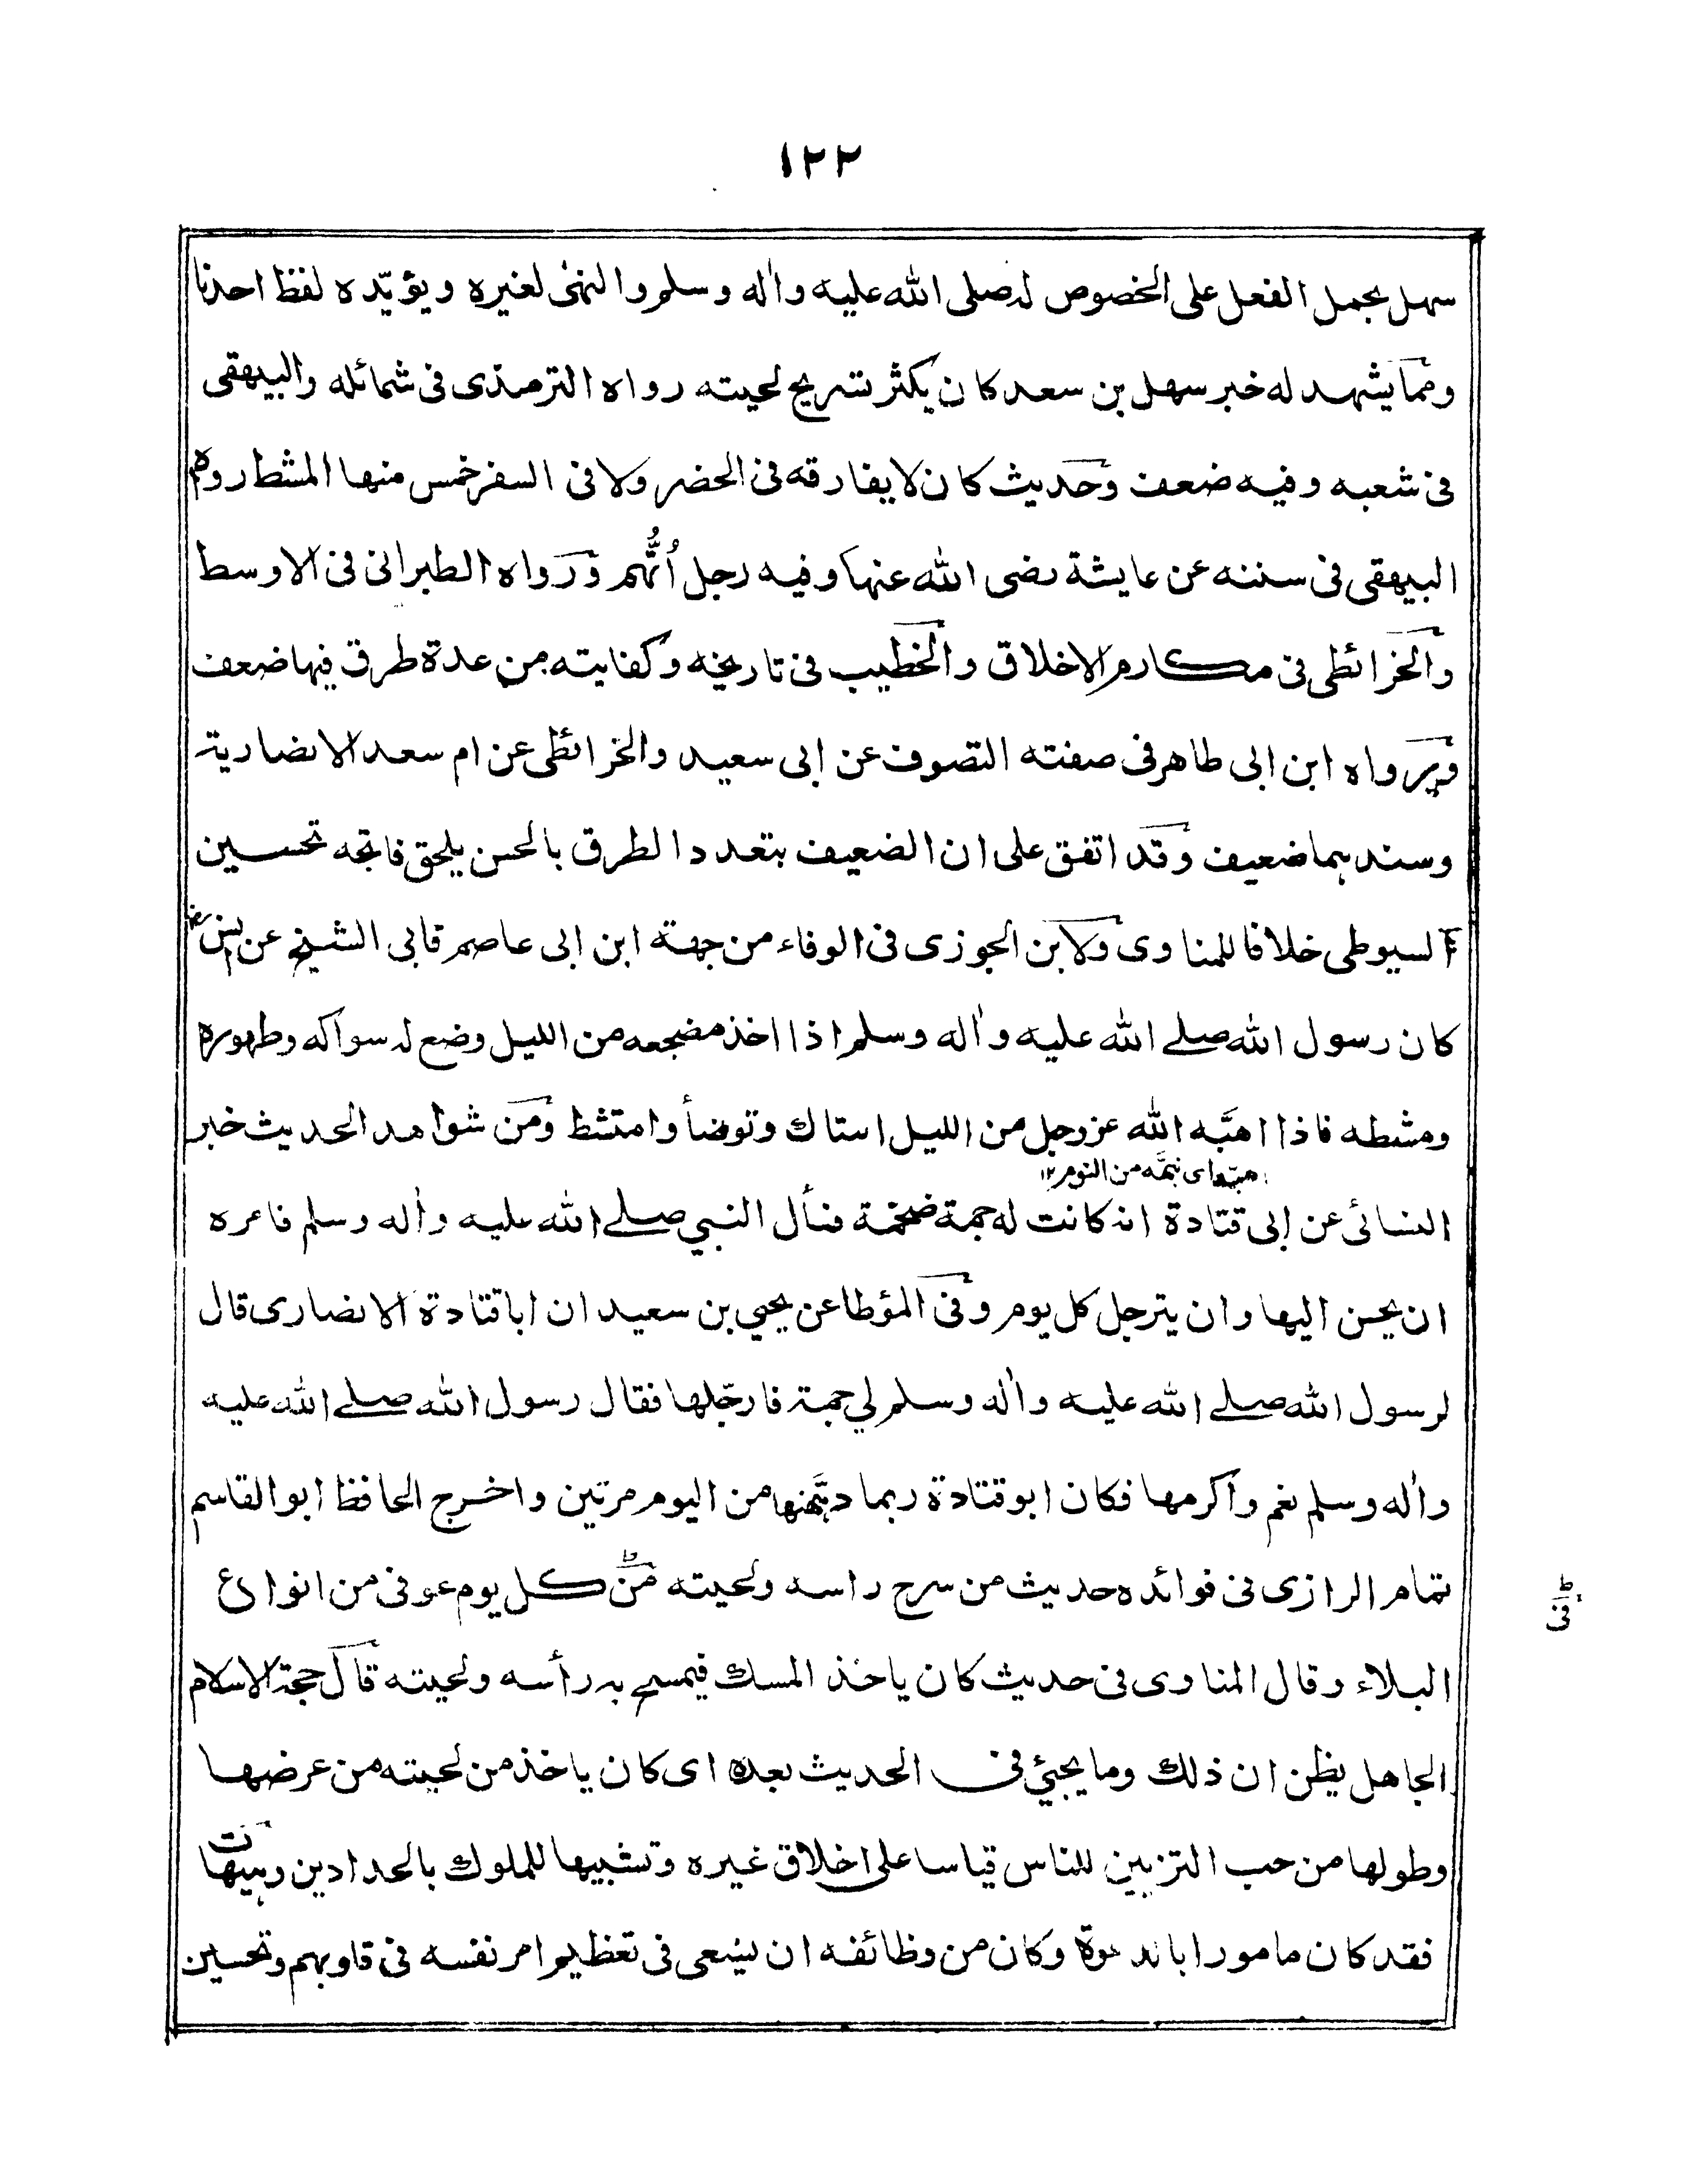 ١٢٢
سهل بحمل الفعل على الخصوص له صلى الله عليه واٰله وسلم والنهى لغيره ويؤيّده لفظ احدنا
ومما يشهد له خبر سهل بن سعد كان يكثر تسريح لحيته رواه الترمذى فى شمائله والبيهقى
فى شعبه وفيه ضعف وحديث كان لا يفارقه فى الحضر ولا فى السفر خمس منها المشط رواه
البيهقى فى سننه عن عايشة رضى الله عنها وفيه رجل اُتُّهم ورواه الطبرانى فى الاوسط
والخرائطى فى مكارم الاخلاق والخطيب فى تاريخه وكفايته من عدة طرق فيها ضعف
ورواه ابن ابى طاهر فى صفته التصوف عن ابى سعيد والخرائطى عن ام سعد الانصارية
وسندهما ضعيف وقد اتفق على ان الضعيف بتعدد الطرق بالحسن يلحق فاتجه تحسين
السيوطى خلافا للمناوى ولابن الجوزى فى الوفاء من جهة ابن ابى عاصم قابى الشيخ عن انس رض
كان رسول الله صلے الله عليه واٰله وسلم اذا اخذ مضجعه من الليل وضع له سواكه وطهوره
ومشطه فاذا اهبّه الله عزوجل من الليل استاك وتوضأ وامتشط ومن شواهد الحديث خبر
اهبّه اى نبهّه من النوم ١٢
النسائى عن ابى قتادة انه كانت له جمة ضخمة فسأل النبي صلے الله عليه واٰله وسلم فامره
ان يحسن اليها وان يترجل كل يوم وفى المؤطا عن يحيي بن سعيد ان اباقتادة الانصارى قال
لرسول الله صلے الله عليه واٰله وسلم لي جمة فارجّلها فقال رسول الله صلے الله عليه
واٰله وسلم نعم واكرمها فكان ابوقتادة ربما دهّنها من اليوم مرتين واخرج الحافظ ابوالقاسم
تمام الرازى فى فوائده حديث من سرح راسه ولحيته من كل يوم عوفى من انواع
فى
البلاء وقال المناوى فى حديث كان ياخذ المسك فيمسح به رأسه ولحيته قال حجة الاسلام
الجاهل يظن ان ذلك وما يجئي فى الحديث بعده اى كان ياخذ من لحيته من عرضها
وطولها من حب التزيين للناس قياسا على اخلاق غيره وتشبيها للملوك بالحدادين وهيهات
فقد كان مامورا بالدعوة وكان من وظائفه ان يسعى فى تعظيم امر نفسه فى قلوبهم وتحسين